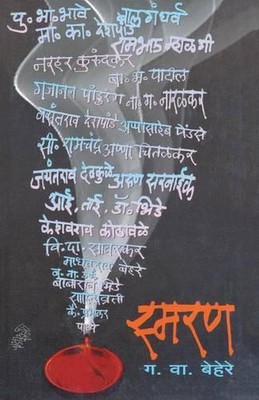 पु. भा. भावे बालगंधर्व
मा. का. देशपांडे
रामभाऊ म्हाळगी
नरहर कुरुंदकर
बा. भ. पाटील
गजानन पांडुरंग ना. ग. नारळकर
वसंतराव देशपांडे अप्पासाहेब पेंडसे
सी. रामचंद्र अण्णा चितळकर
जयंतराव देवकुळे अरुण सरनाईक
आई, ताई, डॉ. भिडे
केशवराव कोठावळे
वि. दा. सावरकर
माधवराव बेहेरे
बाबाराव
स्मरण
ग. वा. बेहेरे